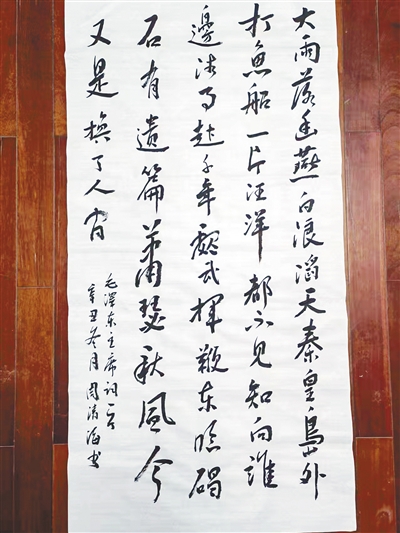 大雨落幽燕白浪滔天秦皇島外
打魚船一片汪洋都不见知向誰
邊往事越千年魏武揮鞭东临碣
石有遗篇萧瑟秋風今
又是换了人间
毛澤东主席词一首
辛丑冬月周海书